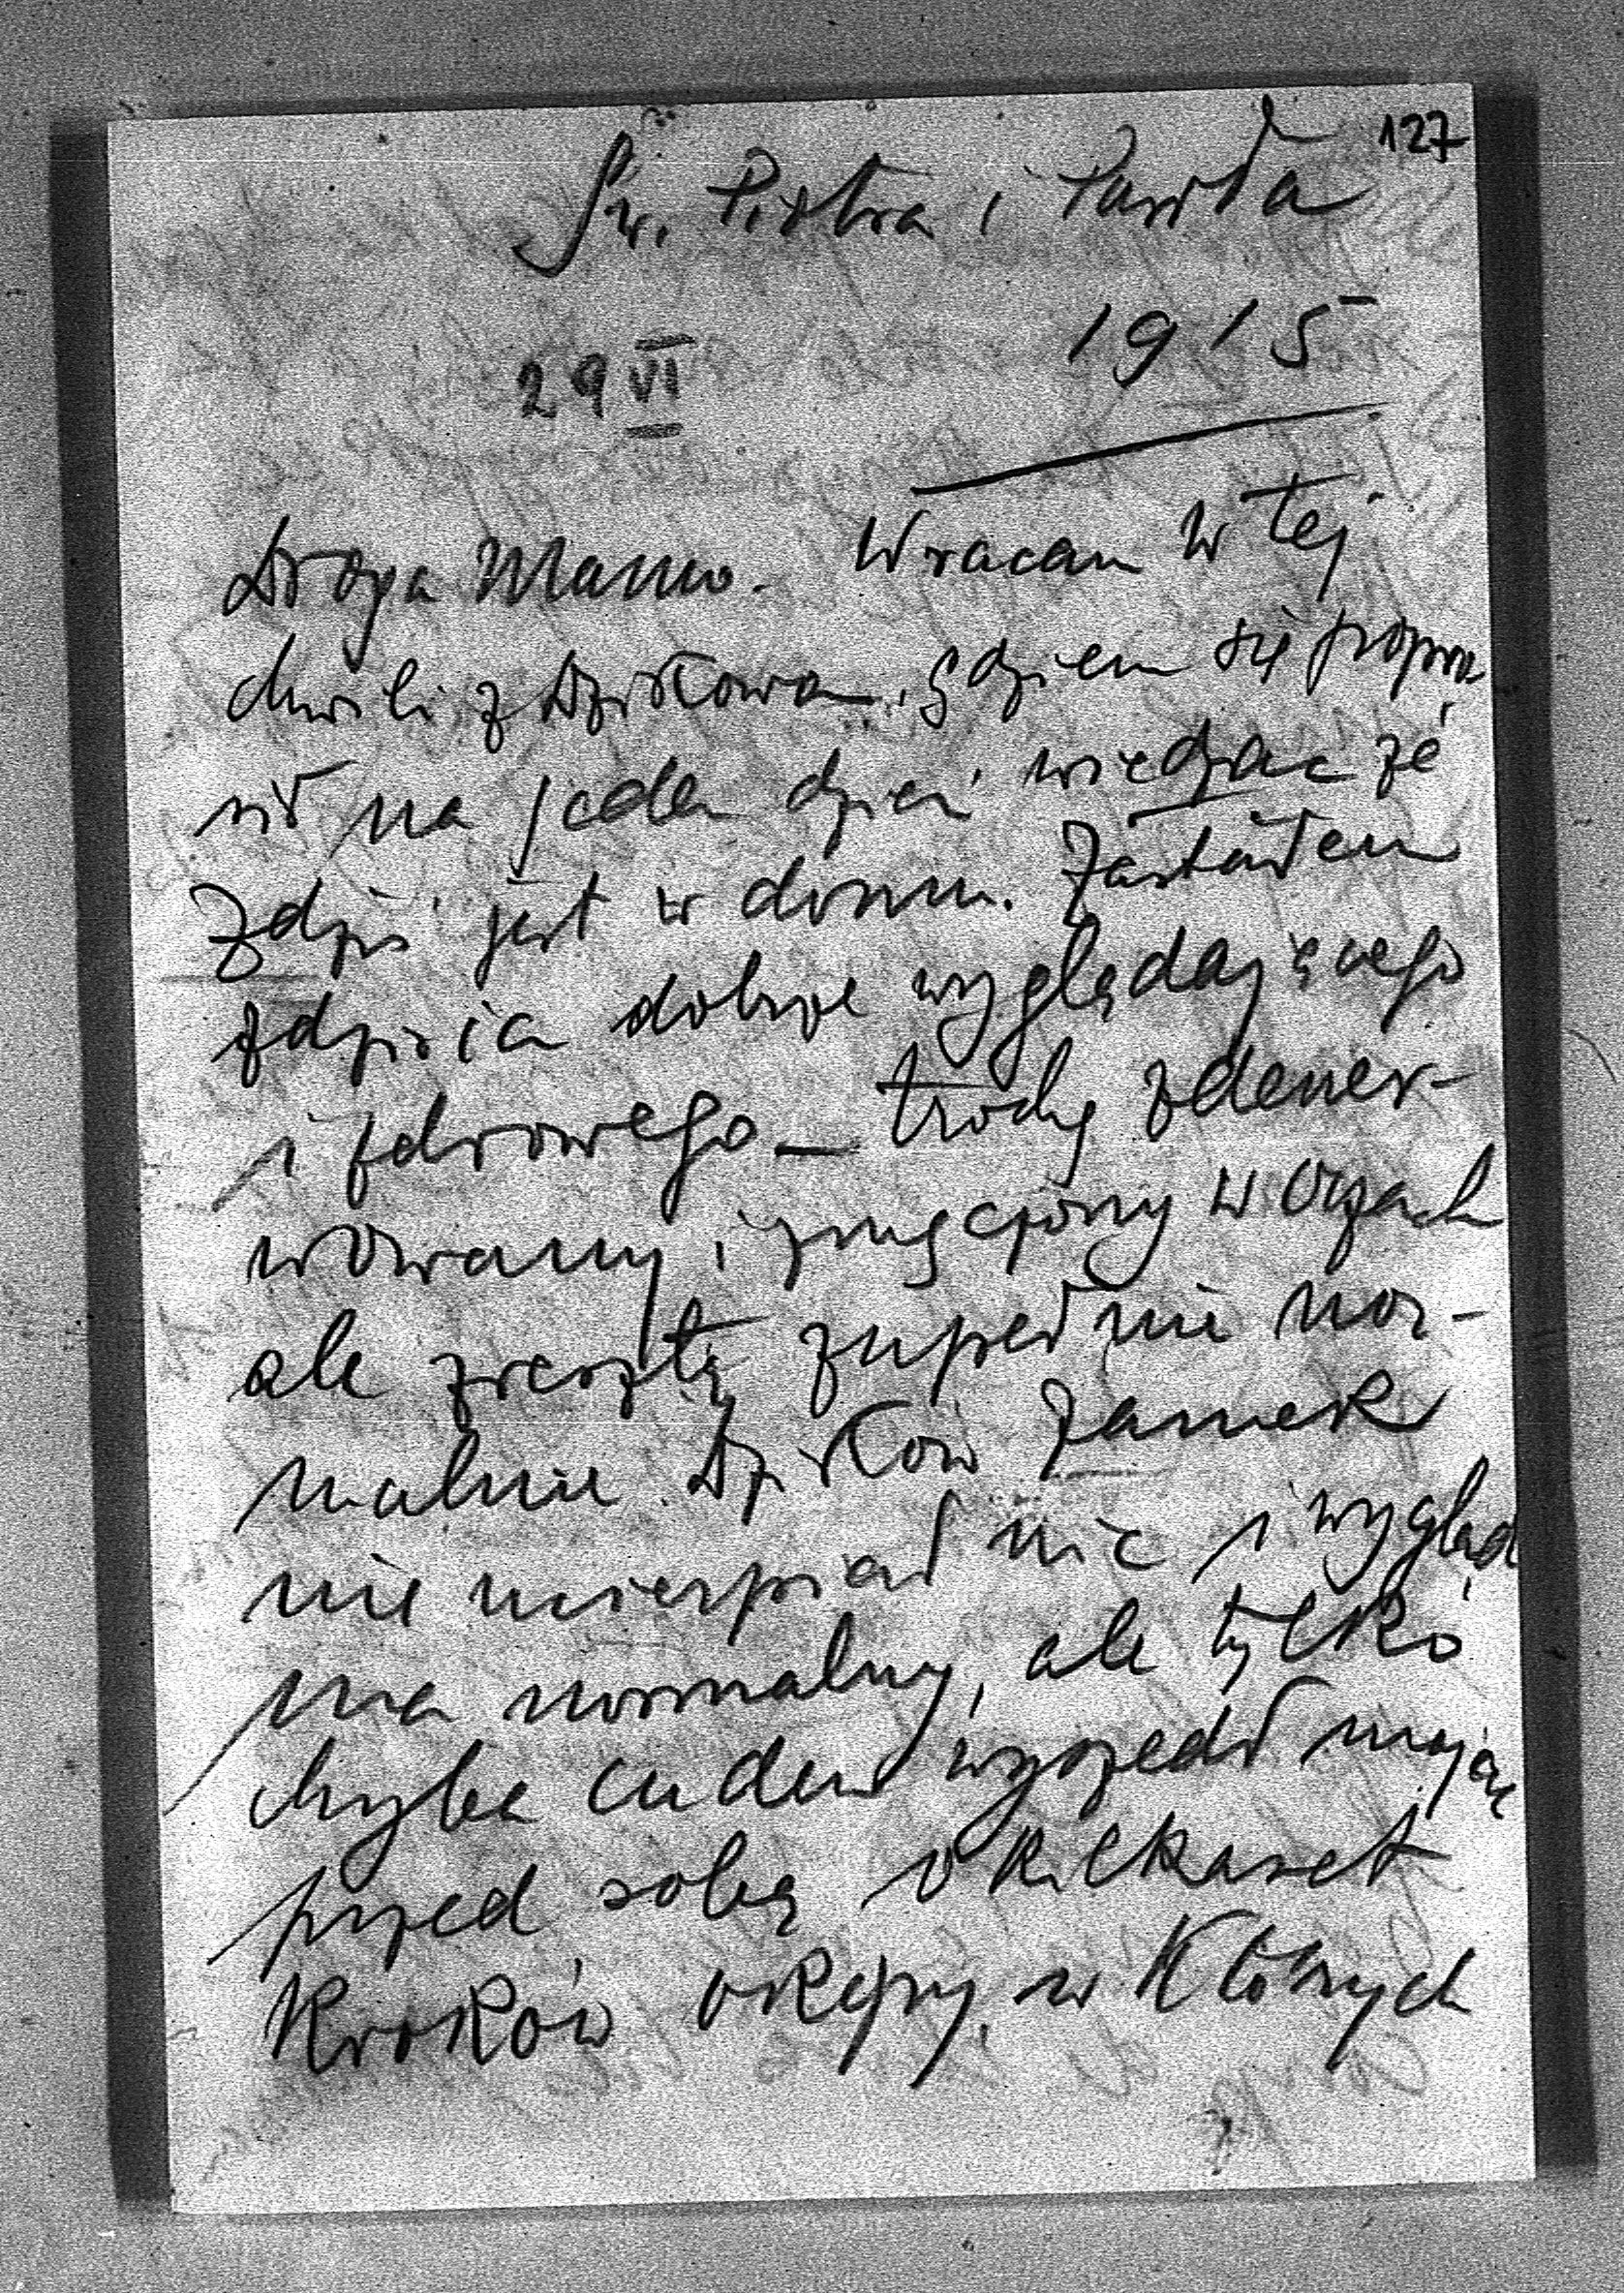 127
Św. Piotra i Pawła
1915
29 VI
Droga Mamo. Wracam w tej
chwili z Dzikowa, gdziem się popro-
sił na jeden dzień wiedząc że
Zdziś jest w domu. Zastałem
Zdzisia dobrze wyglądającego
i zdrowego – trochę zdener-
wowany i zmęczony w oczach
ale zresztą zupełnie nor-
malnie. Dzików Zamek
nie ucierpiał nic i wygląd
ma normalny, ale tylko
chyba cudem wyszedł mając
przed sobą o kilkaset
kroków okopy, w których